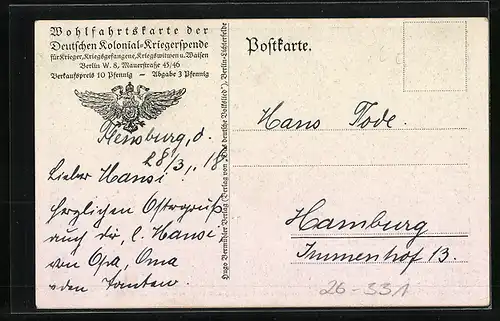 Wohlfahrtskarte der
Deutschen Kolonial-Kriegerspende
für Krieger, Kriegsgefangene, Kriegswitwen u. Waisen
Berlin W. 8, Mauerstraße 45/46
Verkaufspreis 10 Pfennig – Abgabe 3 Pfennig
Postkarte.
Flensburg, d.
28/3, 18
Lieber Hansi,
herzlichen Ostergruß
auch dir, l. Hansi
von Opa, Oma
u. den Tanten.
Hugo Vermühler Verlag (Verlag von „Das deutsche Volkslied"), Berlin-Lichterfelde
Hans Tode.
Hamburg
Immenhof 13.
26-331